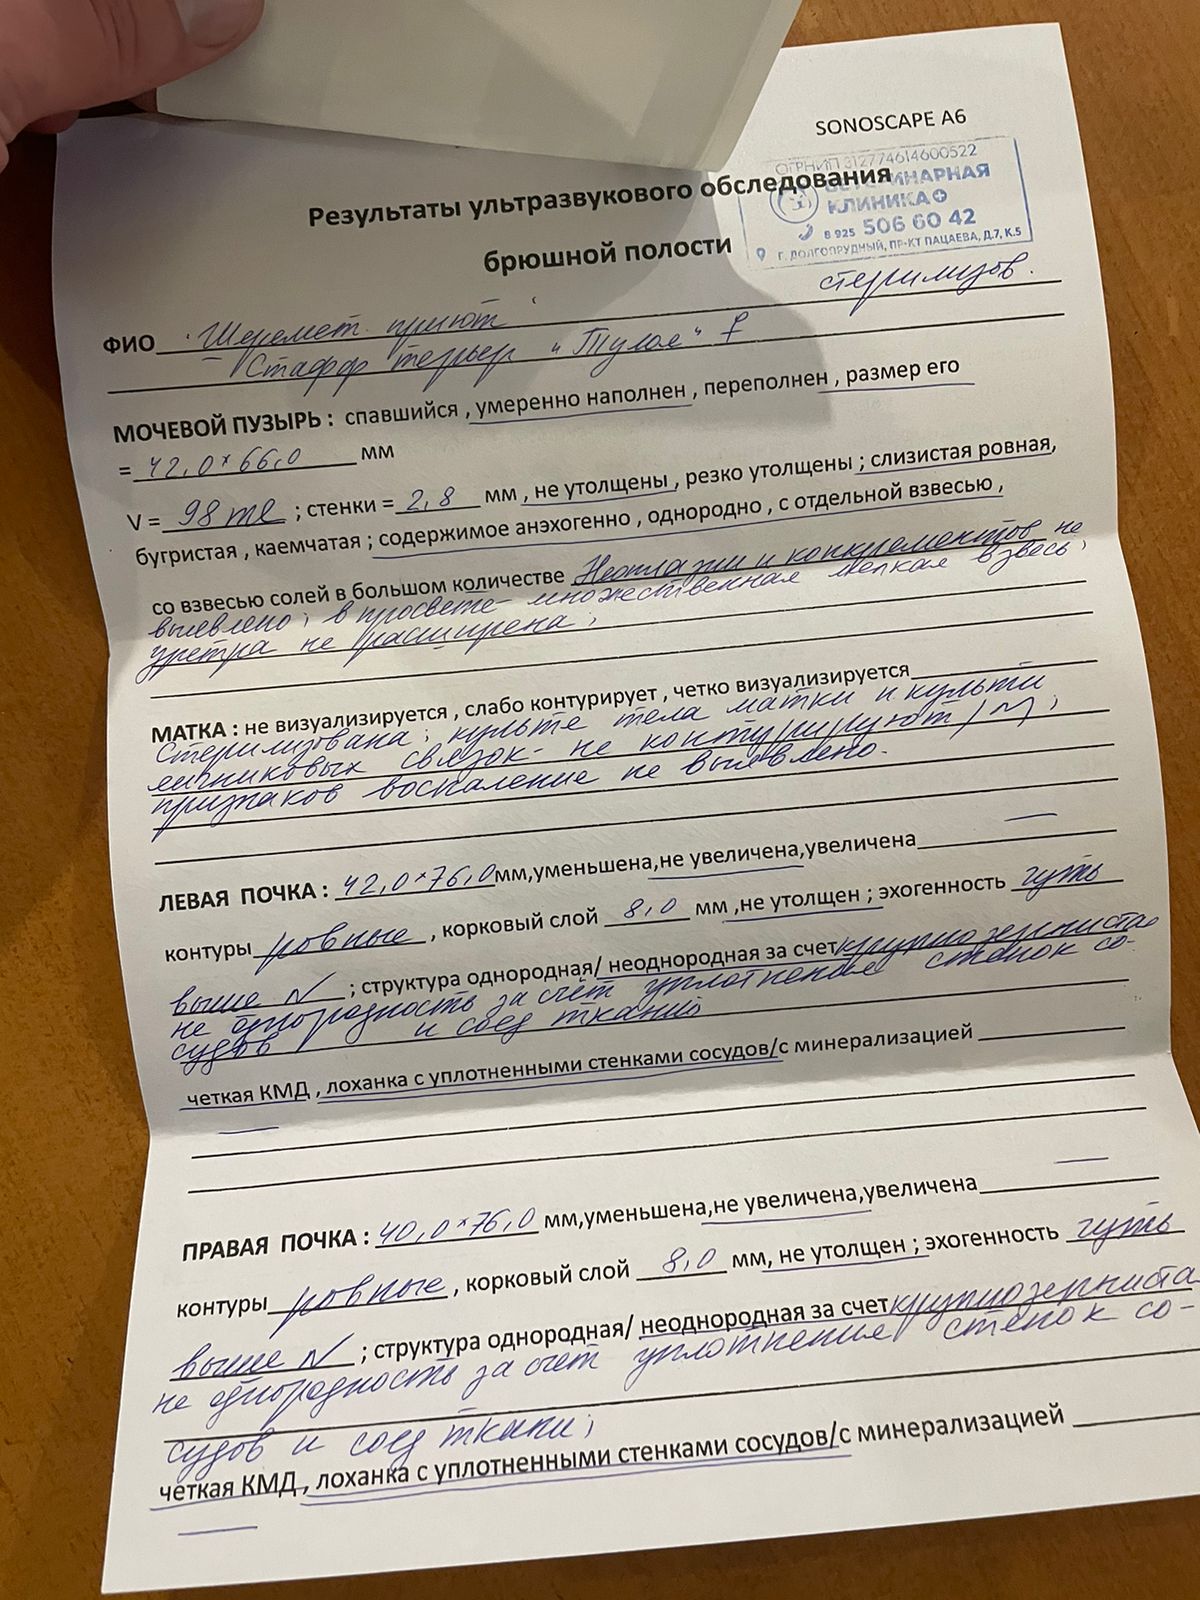 SONOSCAPE A6
ОГРНИП 312774614600522
ВЕТЕРИНАРНАЯ
КЛИНИКА
8 925 506 60 42
Г. ДОЛГОПРУДНЫЙ, ПР-КТ ПАЦАЕВА, Д.7, К.5
Результаты ультразвукового обследования
брюшной полости
стерилизов.
ФИО Шеремет. приют
Стафф терьер " " ♀
МОЧЕВОЙ ПУЗЫРЬ : спавшийся , умеренно наполнен , переполнен , размер его
= 42,0 × 66,0 мм
V = 98 ml ; стенки = 2,8 мм , не утолщены , резко утолщены ; слизистая ровная,
бугристая , каемчатая ; содержимое анэхогенно , однородно , с отдельной взвесью ,
со взвесью солей в большом количестве Неоплазии и конкрементов не
выявлено; в просвете - множественная мелкая взвесь;
уретра не расширена;
МАТКА : не визуализируется , слабо контурирует , четко визуализируется
Стерилизована; культя тела матки и культи
яичниковых связок - не контурируют /N/;
признаков воспаление не выявлено.
ЛЕВАЯ ПОЧКА : 42,0 × 76,0 мм,уменьшена,не увеличена,увеличена —
контуры ровные , корковый слой 8,0 мм ,не утолщен ; эхогенность чуть
выше N ; структура однородная/ неоднородная за счет крупнозерниста
неоднородность за счёт уплотнение стенок со-
судов и соед ткани
четкая КМД , лоханка с уплотненными стенками сосудов/с минерализацией
—
ПРАВАЯ ПОЧКА : 40,0 × 76,0 мм,уменьшена,не увеличена,увеличена —
контуры ровные , корковый слой 8,0 мм, не утолщен ; эхогенность чуть
выше N ; структура однородная/ неоднородная за счет крупнозерниста
неоднородность за счет уплотнения стенок со-
судов и соед ткани;
четкая КМД , лоханка с уплотненными стенками сосудов/с минерализацией
—